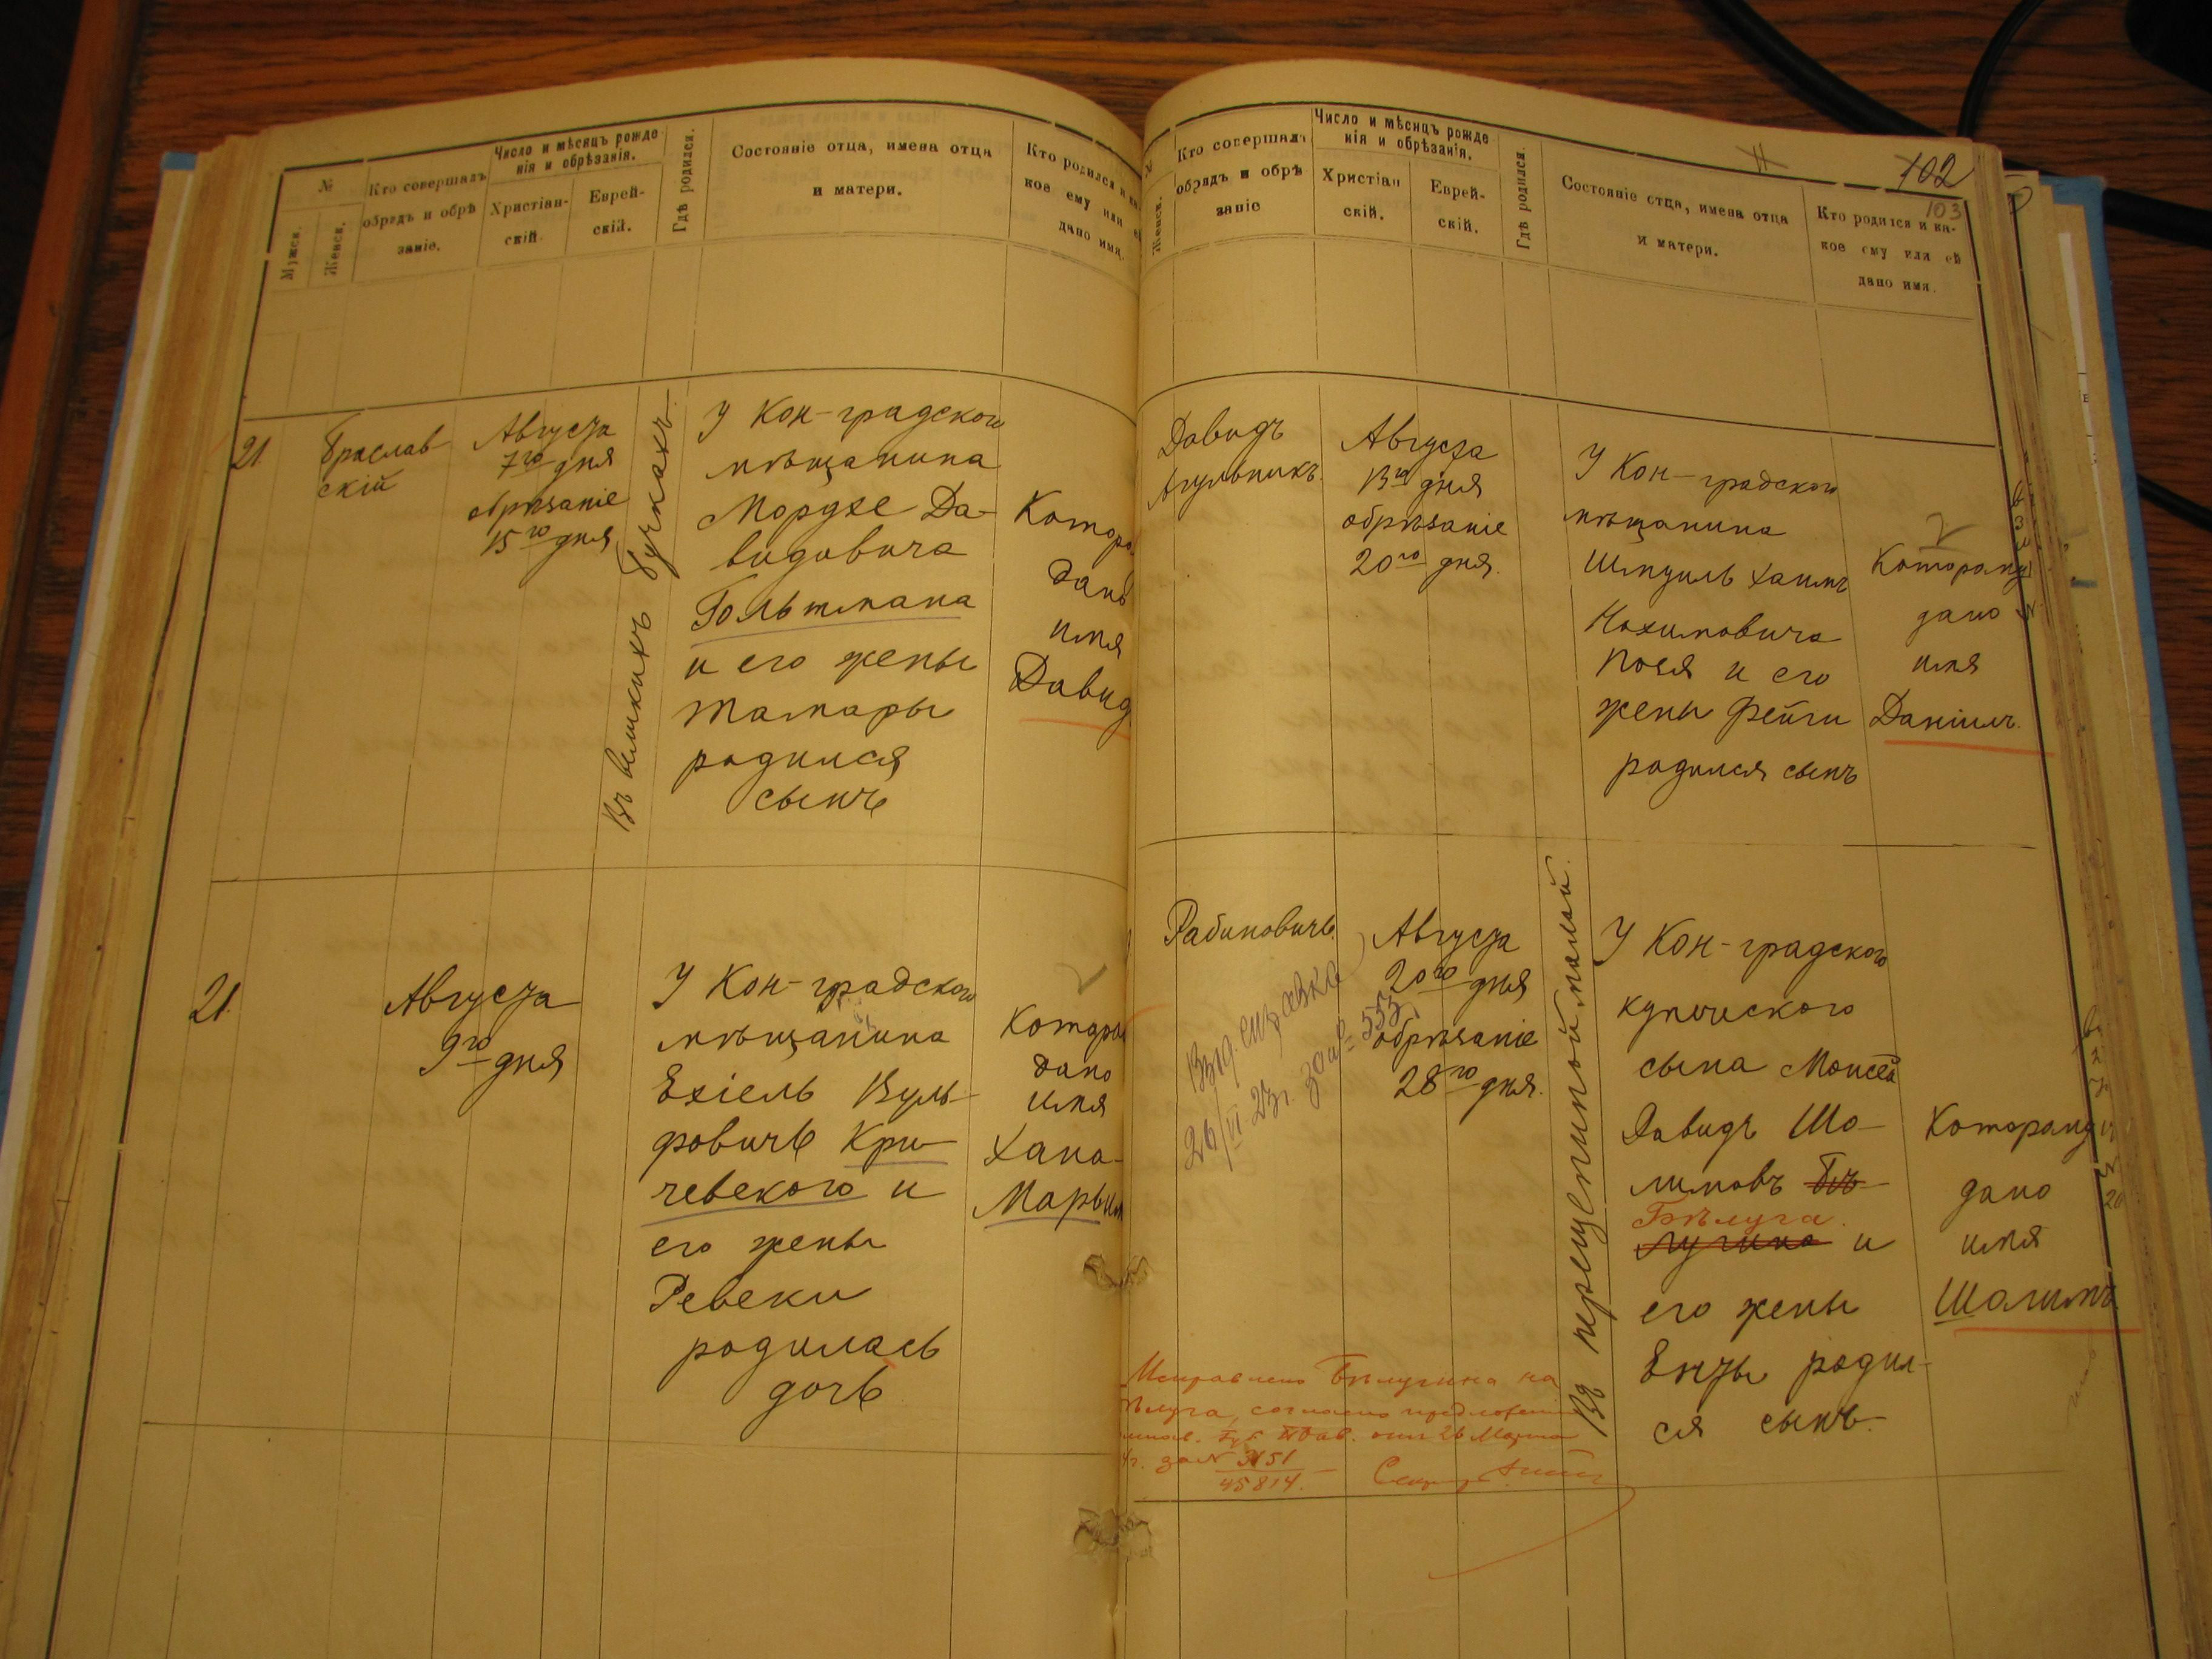 №
Мужск.
Женск.
Кто совершалъ
обрядъ и обрѣ
заніе.
Число и мѣсяцъ рожде
нія и обрѣзанія.
Христіан-
скій.
Еврей-
скій.
Гдѣ родился.
Состояніе отца, имена отца
и матери.
Кто родился и ка-
кое ему или ей
дано имя.
21.
Браслав-
скій
Августа
7го дня
обрѣзаніе
15го дня
Въ великихъ Бучкахъ.
У Кон-градского
мѣщанина
Мордхе Да-
видовича
Гольтмана
и его жены
Тамары
родился
сынъ
Которо
дано
имя
Давид
21.
Августа
9го дня
У Кон-градского
мѣщанина
Ехіель Вуль-
фовичъ Кри-
чевского и
его жены
Ревеки
родилась
дочь
Которы
дано
имя
Хана-
Марьям
Женск.
Кто совершалъ
обрядъ и обрѣ
заніе
Число и мѣсяцъ рожде
нія и обрѣзанія.
Христіан
скій.
Еврей-
скій.
Гдѣ родился.
Состояніе отца, имена отца
и матери.
102
103
Кто родился и ка-
кое ему или ей
дано имя.
Давидъ
Агульникъ.
Августа
13го дня
обрѣзаніе
20го дня.
У Кон-градского
мѣщанина
Шмуиль Хаимъ
Нохимовича
и его
жены Фейги
родился сынъ
Которому
дано
имя
Даніилъ.
Рабиновичъ.
Выд. справка
26/VI 23г. за № 553.
Августа
20го дня
обрѣзаніе
28го дня.
Въ перещепиной малой.
У Кон-градского
купческого
сына Моисей
Давидъ Шо-
лимовъ Бѣ-
Бѣлуга.
лугина и
его жены
Енты родил-
ся сынъ.
Которому
дано
имя
Шолимъ.
Исправлено Бѣлугина на
ѣлуга, согласно предложенія
Губ. Прав. отъ 26 Марта
4г. за № 3151
45814.